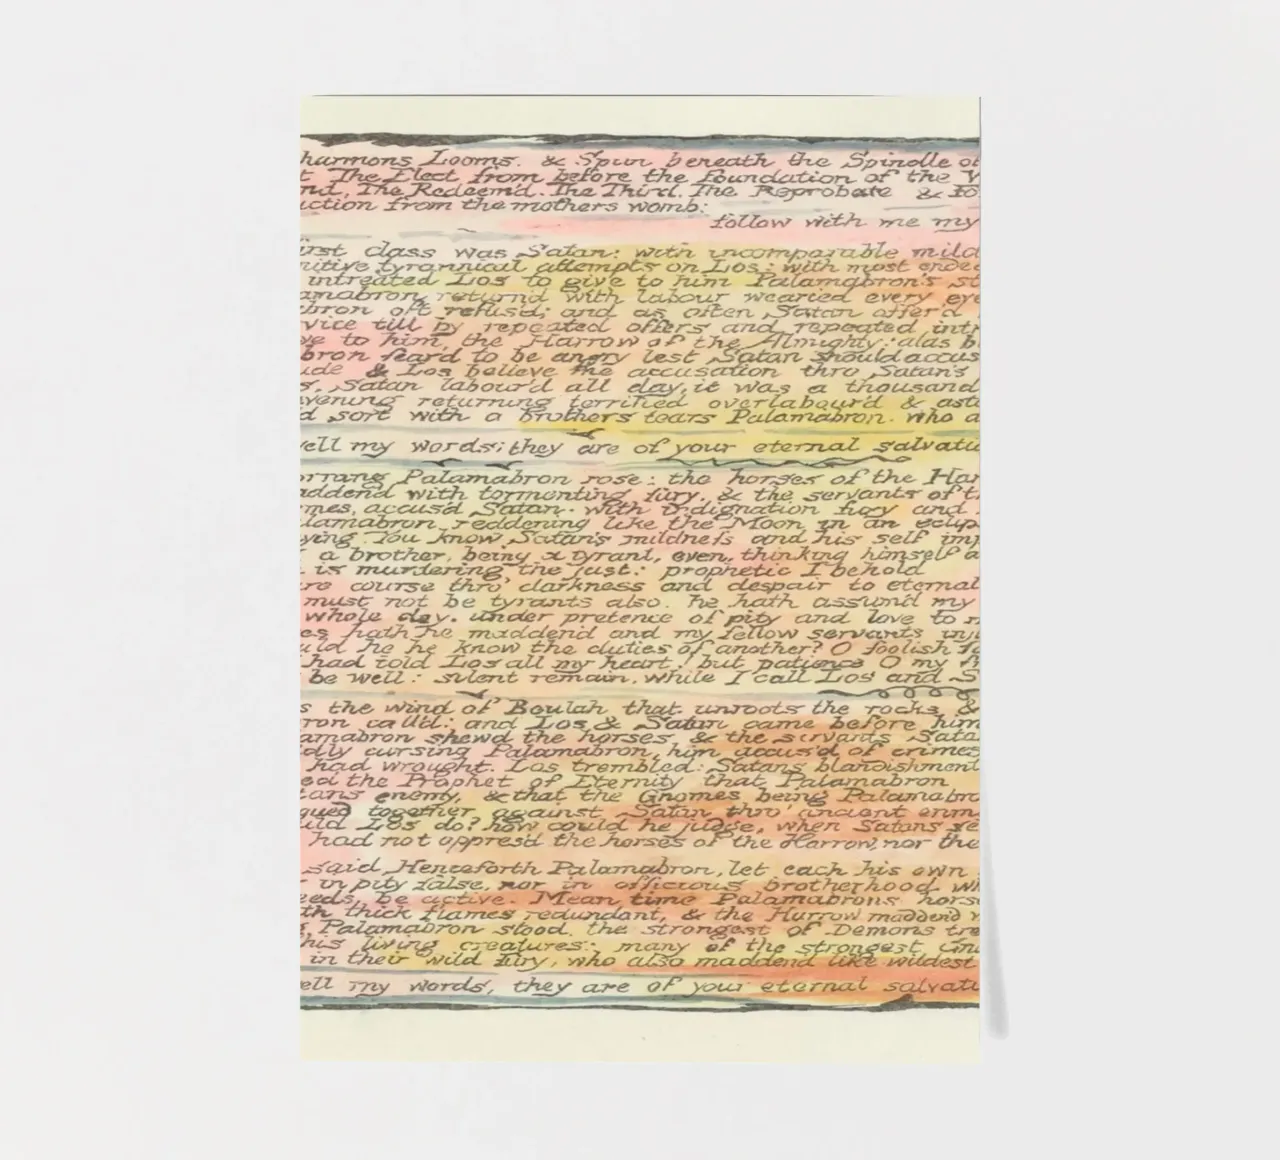 harmons Looms. & Spun beneath the Spindle of
The Elect from before the Foundation of the
The Redeem'd. The Third. The Reprobate & fo
uction from the mothers womb:
follow with me my
irst class was Satan: with incomparable mild
nitive tyrannical attempts on Los: with most endea
intreated Los to give to him Palamabron's st
amabron return'd with labour wearied every eve
bron oft refus'd; and as often Satan offer'd
vice till by repeated offers and repeated intr
ve to him, the Harrow of the Almighty: alas b
bron fear'd to be angry lest Satan should accus
ude & Los believe the accusation thro Satan's
s. Satan labour'd all day, it was a thousand
evening returning terrified overlabour'd & asto
d sort with a brothers tears Palamabron. who a
ell my words; they are of your eternal salvatio
Palamabron rose: the horses of the Har
addend with tormenting fury, & the servants of t
mes, accus'd Satan. with indignation fury and
lamabron reddening like the Moon in an eclip
ying You know Satan's mildness and his self imp
a brother, being a tyrant, even, thinking himself a
is murdering the just: prophetic I behold
re course thro' darkness and despair to eternal
must not be tyrants also. he hath assum'd my
whole day. under pretence of pity and love to m
es hath he maddend and my fellow servants inju
uld he he know the duties of another? O foolish fo
had told Los all my heart! but patience O my
be well: silent remain, while I call Los and S
s the wind of Beulah that unroots the rocks &
ron call'd: and Los & Satan came before him
amabron shewd the horses, & the servants Sata
dly cursing Palamabron, him accus'd of crimes
had wrought. Los trembled: Satans blandishment
ed the Prophet of Eternity that Palamabron
tans enemy, & that the Gnomes being Palamabro
gued together against Satan thro' ancient enm
uld Los do? how could he judge, when Satans se
had not oppres'd the horses of the Harrow, nor the
said, Henceforth Palamabron, let each his own
in pity false, nor in officious brotherhood wh
eeds, be active. Mean time Palamabrons horse
th thick flames redundant, & the Harrow maddend
Palamabron stood. the strongest of Demons tre
his living creatures; many of the strongest Gno
in their wild fury, who also maddend like wildest
ell my words, they are of your eternal salvatio